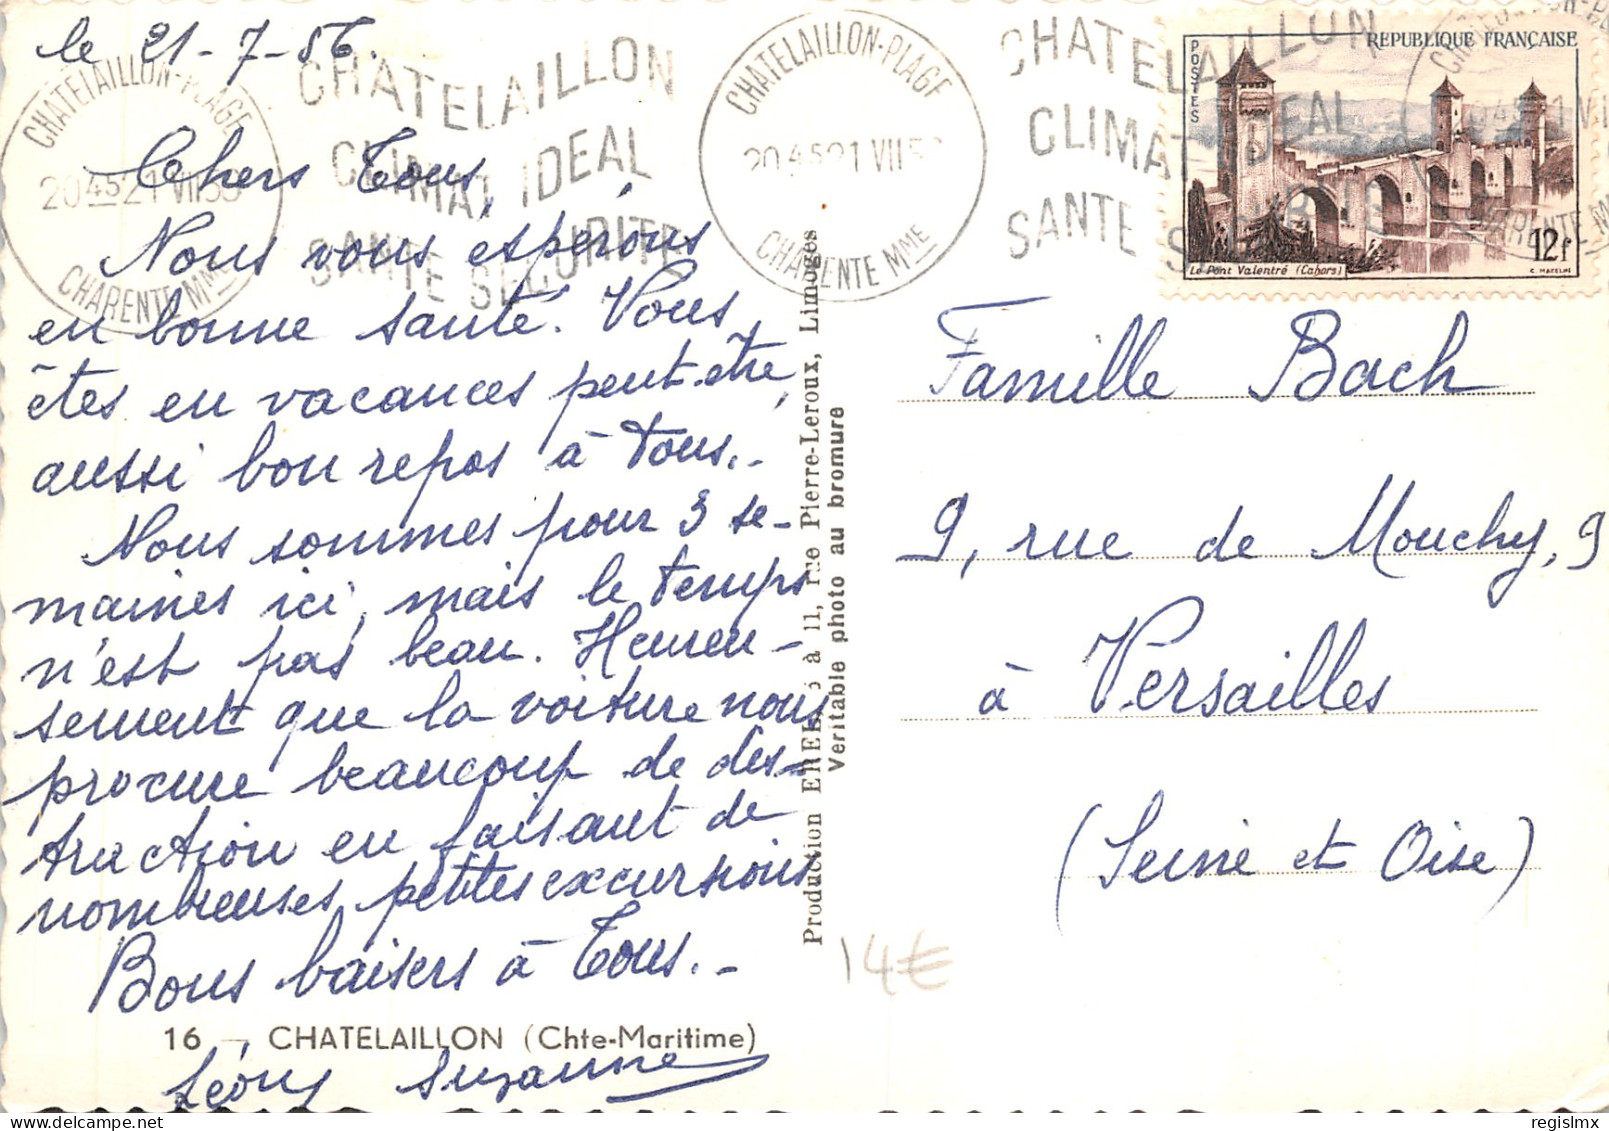 le 21-7-56.
Chers Tous,
Nous vous espérons
en bonne santé. Vous
êtes en vacances peut-être,
aussi bon repos à tous.-
Nous sommes pour 3 se-
maines ici, mais le temps
n'est pas beau. Heureu-
sement que la voiture nous
procure beaucoup de des-
traction en faisant de
nombreuses petites excursions
Bons baisers à Tous.-
16 - CHATELAILLON (Chte-Maritime)
Suzanne
CHATELAILLON-PLAGE
20 45 21 VII
CHARENTE MME
CHATELAILLON
CLIMAT IDEAL
SANTE SECURITE
CHATELAILLON-PLAGE
20 45 21 VII
CHARENTE MME
CHATELAILLON
CLIMAT IDEAL
SANTE
CHARENTE MME
POSTES
REPUBLIQUE FRANÇAISE
12f
Le Pont Valentré (Cahors)
C. MAZELIN
Production à 11, rue Pierre-Leroux, Limoges
Véritable photo au bromure
Famille Bach
9, rue de Mouchy, 9
à Versailles
(Seine et Oise)
14€
www.delcampe.net
regislmx